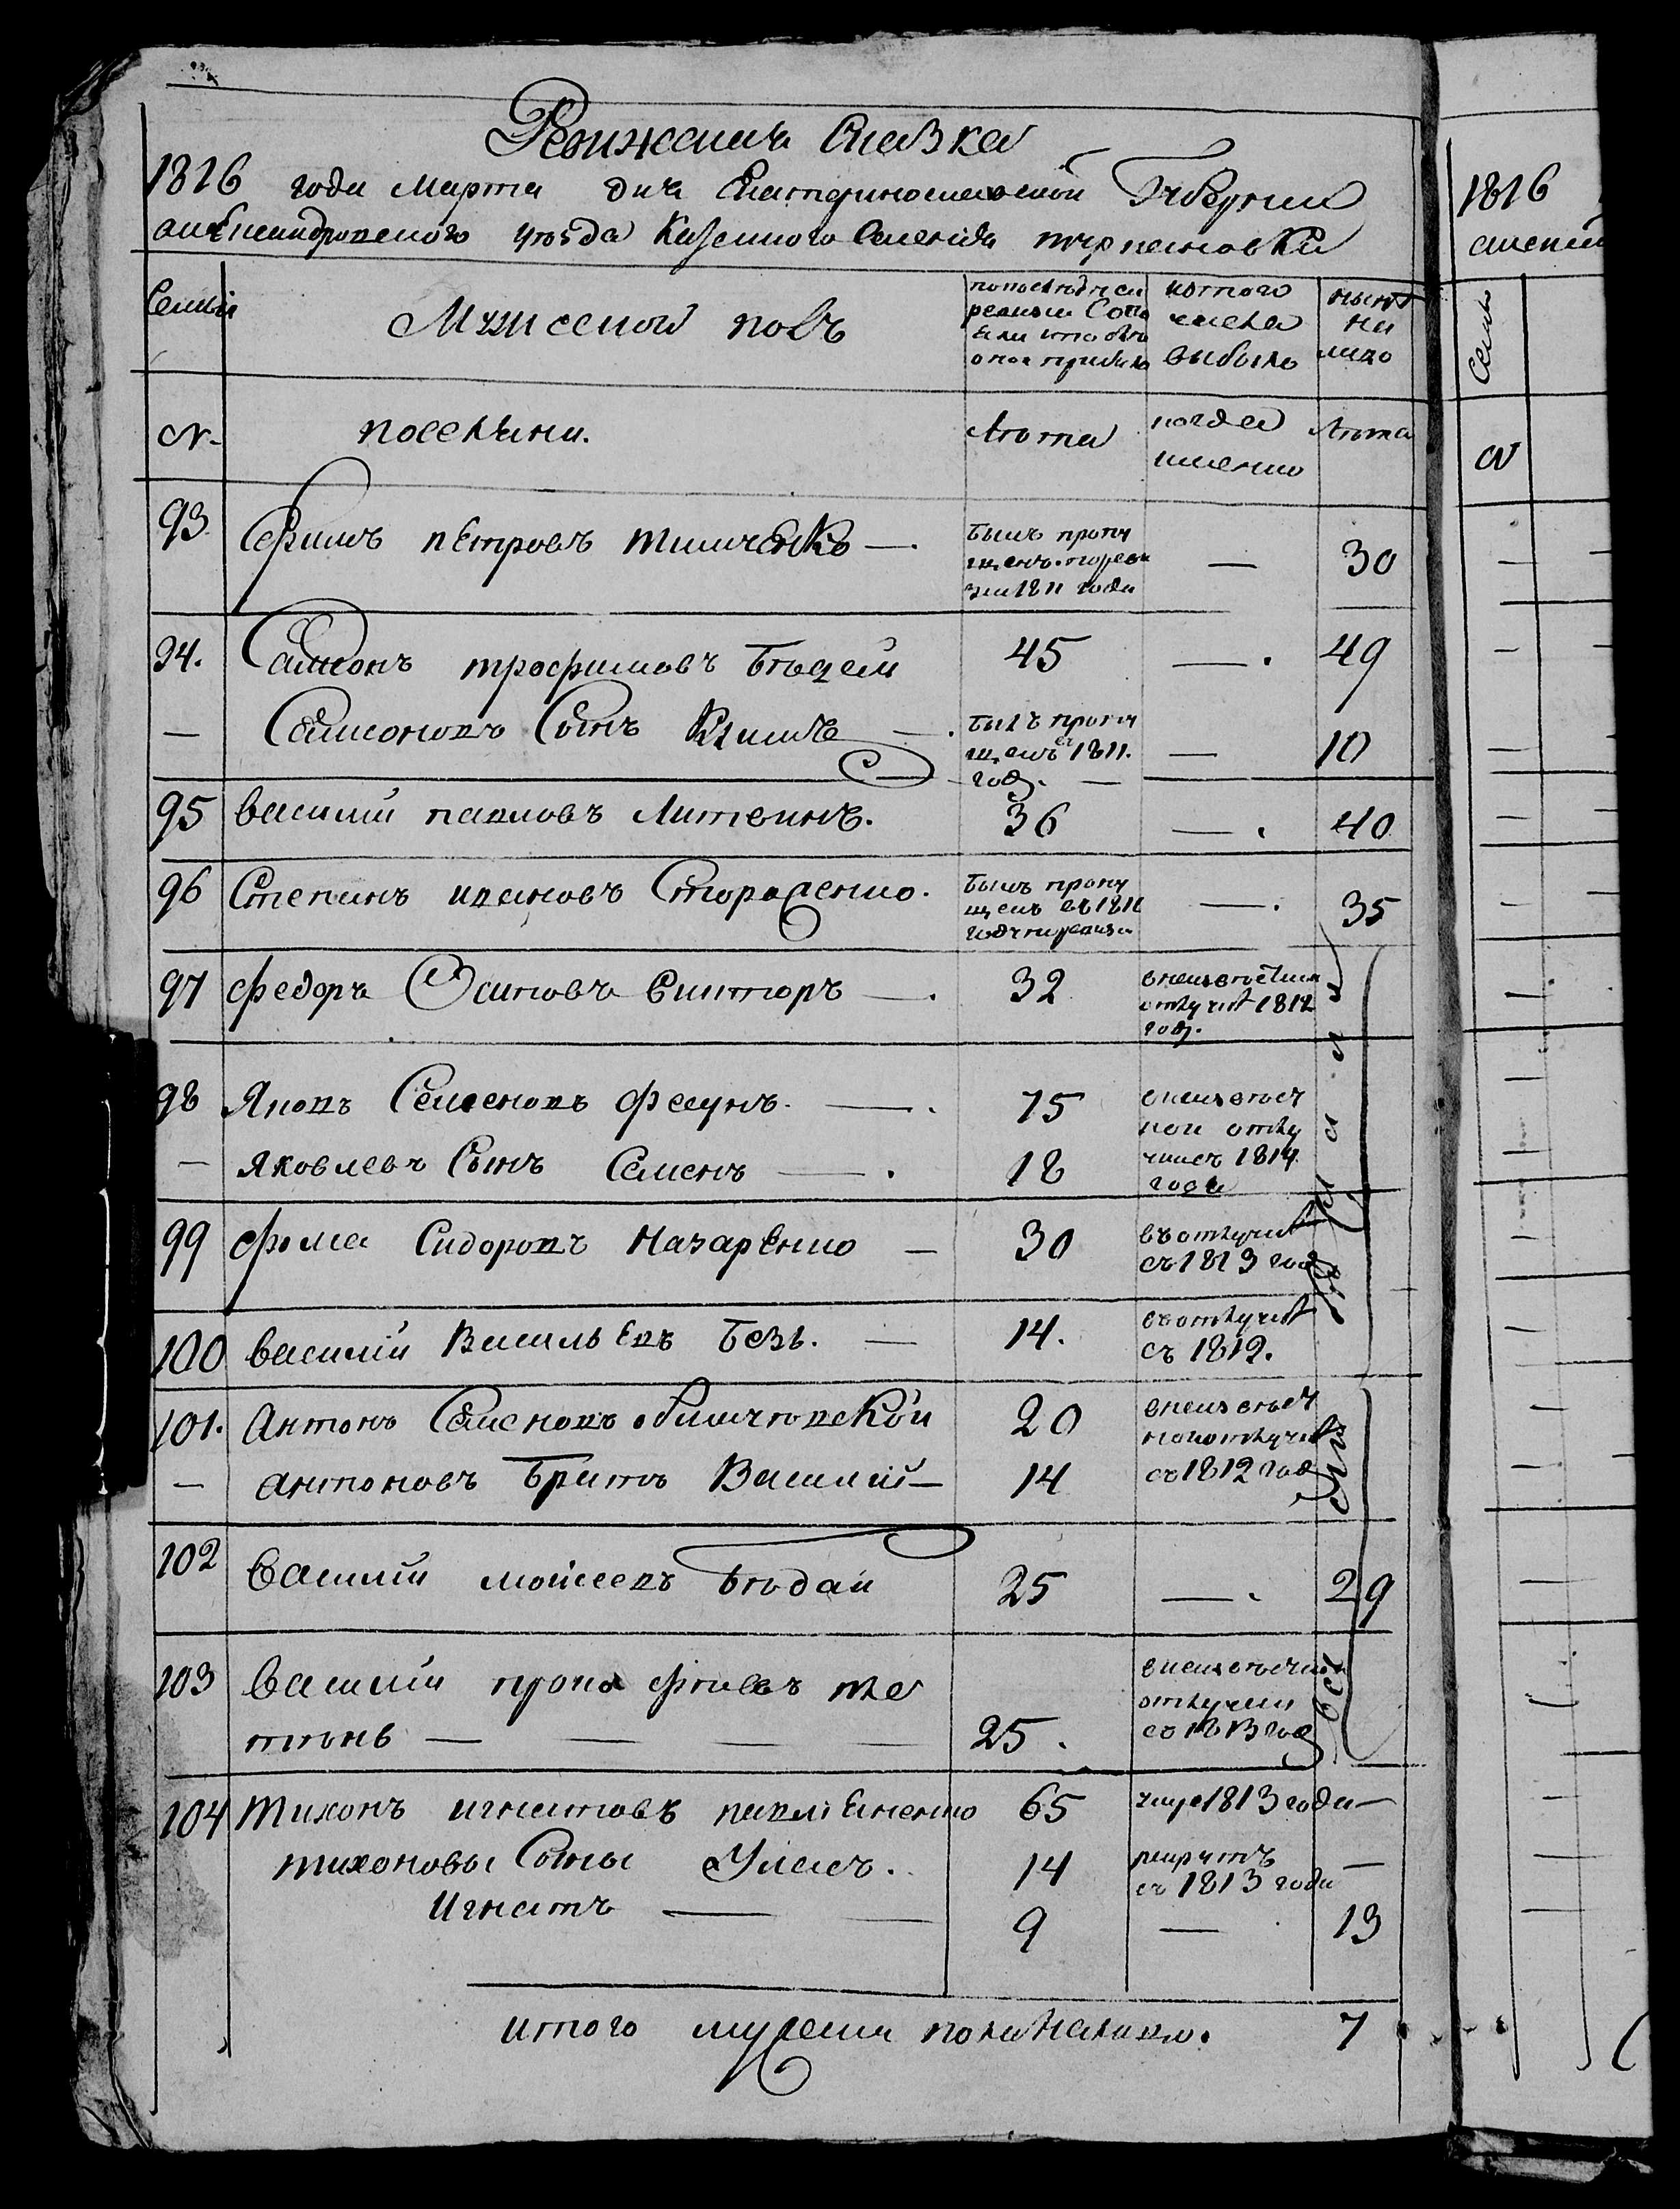 Ревижская Сказка
1816 года Марта дня Екатеринославской Губернии
александровского уезда Казенного Селения терпеновки
Семьи
Мужеской полъ
по последней
ревизии состо
яли и после
оной прибыло
изтого
числа
выбыло
ныне
на
лицо
№
поселяни.
Лета
когда
именно
Лета
93 Ефимъ петровъ тимченко —. былъ пропу
щенъ по реви
зии 1811 года — 30
94. Самсонъ трофимовъ Бъцей 45 —. 49
— Самсоновъ Сынъ Климъ —. былъ пропу
щенъ въ 1811.
году. — — 10
95 василий павловъ Литвинъ. 36 —. 40
96 Степанъ ивановъ Стороженко. былъ пропу
щенъ въ 1811
году по ревизи —. 35
97 федоръ Осиповъ —. 32 внеизвестной
отлучке 1812
году.
98 Яковъ Семеновъ фесунъ. —. 75 внеизвест
ной отлу
чке съ 1814
года
— Яковлевъ Сынъ Семенъ —. 18
99 фома Сидоровъ Назаренко — 30 въ отлучке
съ 1813 год
100 василий Васильевъ безъ. — 14. въ отлучке
съ 1812.
101. Антонъ Семеновъ 20 внеизвест
ной отлучке
съ 1812 год
— антоновъ братъ Василий — 14
102 Василий моисеевъ Бъдай 25 —. 29
103 Василий прокофиевъ
— — — — 25. внеизвестной
отлучки
съ 1813 год
104 Тихонъ игнатовъ павлюченко 65 умре 1813 года —
тихоновы Сыны Улась. 14 рекрутъ
съ 1813 года —
Игнатъ — — 9 — 13
итого мужеска пола налицо. 7
1816
Семьи
№